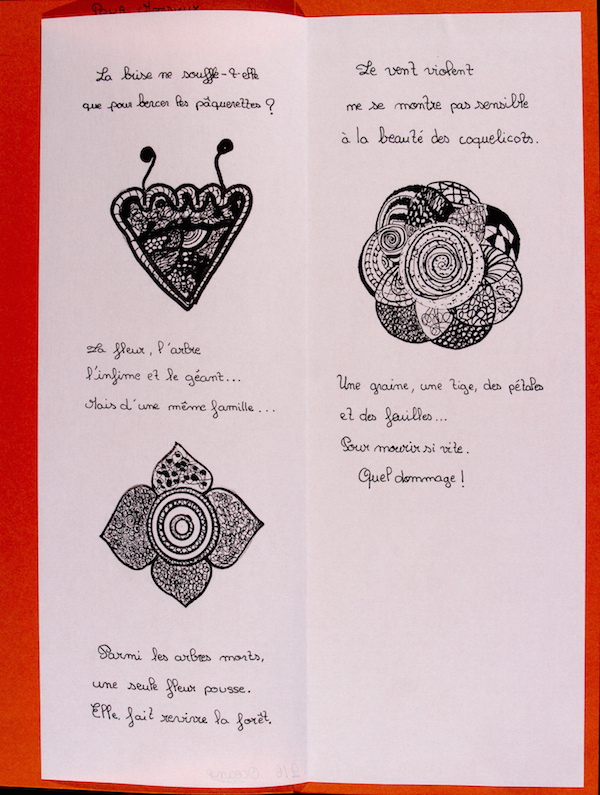 Pour Monsieur
La brise ne souffle-t-elle
que pour bercer les pâquerettes ?
La fleur, l'arbre
l'infime et le géant...
Mais d'une même famille...
Parmi les arbres morts,
une seule fleur pousse.
Elle fait revivre la forêt.
Le vent violent
ne se montre pas sensible
à la beauté des coquelicots.
Une graine, une tige, des pétales
et des feuilles...
Pour mourir si vite.
Quel dommage !